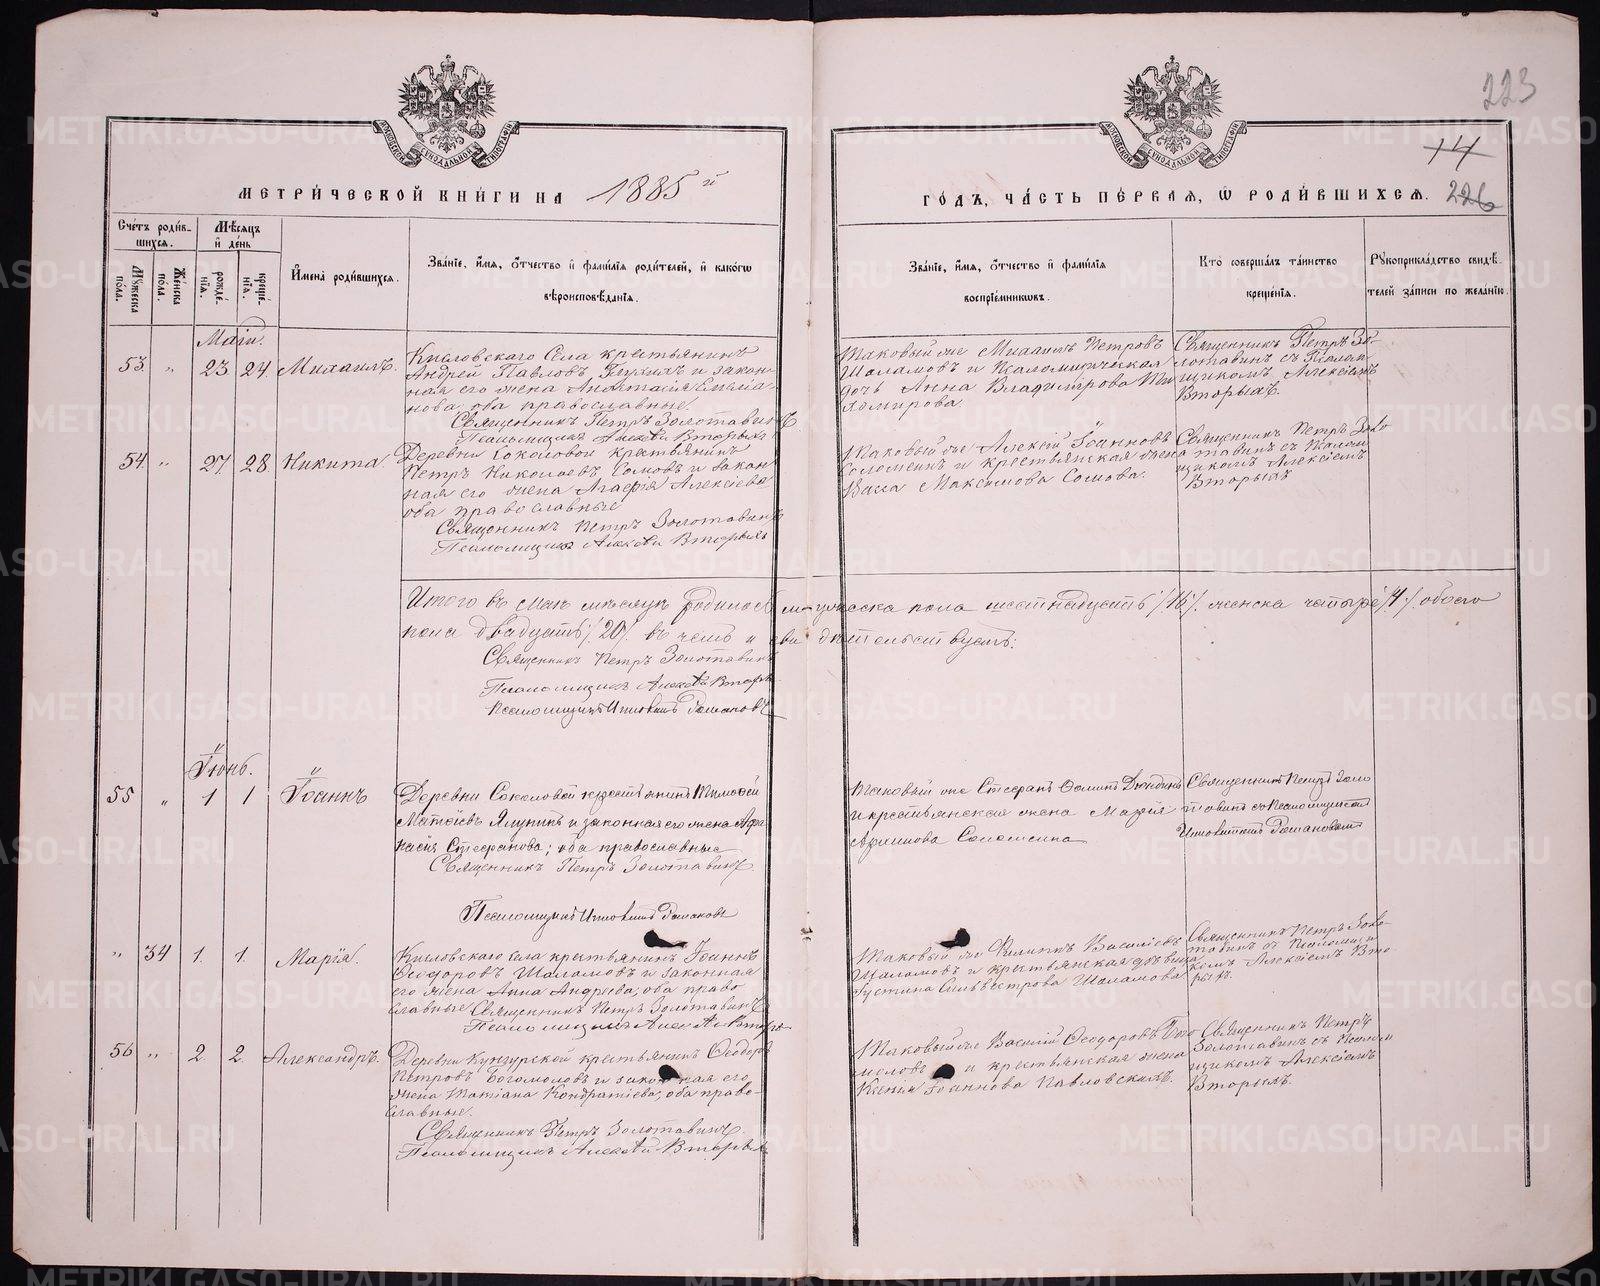 223
14
226
МОСКОВСКОЙ СУНОДАЛЬНОЙ ТИПОГРАФІИ
МОСКОВСКОЙ СУНОДАЛЬНОЙ ТИПОГРАФІИ
МЕТРИ́ЧЕСКОЙ КНИ́ГИ НА 1885й
ГО́ДЪ, ЧА́СТЬ ПЕ́РВАЯ, Ѡ РОДИ́ВШИХСЯ.
Сче́тъ роди́вшихся.
Мѣ́сяцъ и де́нь
Му́жеска по́ла.
Же́нска по́ла.
рожде́нїя.
креще́нїя.
Имена̀ роди́вшихся.
Зва́нїе, и́мя, о́тчество и фами́лїя роди́телей, и како́гѡ
вѣроисповѣ́данїя.
Зва́нїе, и́мя, о́тчество и фами́лїя
воспрїе́мникѡвъ.
Кто̀ соверша́лъ та́инство
креще́нїя.
Рукоприкла́дство свидѣ́телей за́писи по жела́нїю.
Маій.
53 " 23 24 Михаилъ.
Кисловскаго Села крестьянинъ
Андрей Павловъ и законная его жена Анастасія Емельянова, оба православные.
Священникъ Петръ Золотавинъ
Псаломщикъ Алексѣй Вторыхъ
Таковый же Михаилъ Петровъ
Шаламовъ и псаломщическая
дочь Анна Владимірова
Священникъ Петръ Золотавинъ съ Псаломщикомъ Алексіемъ
Вторыхъ.
54 " 27 28 Никита.
Деревни Соколовой крестьянинъ
Петръ Николаевъ Сомовъ и законная его жена Агафія Алексіева
оба православные
Священникъ Петръ Золотавинъ
Псаломщикъ Алексѣй Вторыхъ
Таковый же Алексій Іоанновъ
и крестьянская жена
Васса Максимова Сомова.
Священникъ Петръ Золотавинъ съ Псаломщикомъ Алексіемъ
Вторыхъ
Итого въ Маѣ мѣсяцѣ родилось мужеска пола шестнадцать /16/. женска четыре /4/. обоего
пола двадцать /20/. въ чемъ и свидѣтельствуемъ:
Священникъ Петръ Золотавинъ
Псаломщикъ Алексѣй Вторыхъ
Псаломщикъ Ипполитъ
Іюнь.
55 " 1 1 Іоаннъ
Деревни Соколовой крестьянинъ Тимофей
Матѳіевъ и законная его жена Афанасія Стефанова; оба православные
Священникъ Петръ Золотавинъ
Псаломщикъ Ипполитъ
Таковый же Стефанъ
и крестьянская жена Марія
Священникъ Петръ Золотавинъ съ Псаломщикомъ
Ипполитомъ
" 34 1. 1. Марія.
Кисловскаго Села крестьянинъ Іоаннъ
Ѳеодоровъ Шаламовъ и законная
его жена Анна Андреева, оба православные
Священникъ Петръ Золотавинъ
Псаломщикъ Алексѣй Вторыхъ
Таковый же Филиппъ Васильевъ
Шаламовъ и крестьянская дѣвица
Устина Сильвестрова Шаламова
Священникъ Петръ Золотавинъ съ Псаломщикомъ Алексіемъ Вторыхъ.
56 " 2 2. Александръ.
Деревни Кунгурской крестьянинъ Ѳеодоръ
Петровъ Богомоловъ и законная его
жена Татіана Кондратіева, оба православные.
Священникъ Петръ Золотавинъ.
Псаломщикъ Алексѣй Вторыхъ
Таковый же Василій Ѳеодоровъ Богомоловъ и крестьянская жена
Ксенія Іоаннова
Священникъ Петръ
Золотавинъ съ Псаломщикомъ Алексіемъ
Вторыхъ.
METRIKI.GASO-URAL.RU